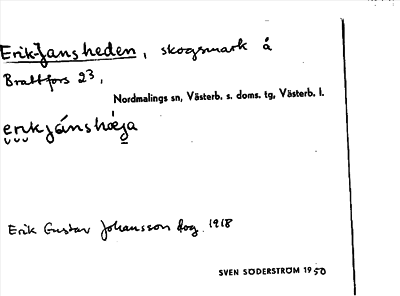 Erik-Jansheden, skogsmark å
Brattfors 2³,
Nordmalings sn, Västerb. s. doms. tg, Västerb. l.
erikjánshæja
Erik Gustav Johansson dog. 1918
SVEN SÖDERSTRÖM 1950